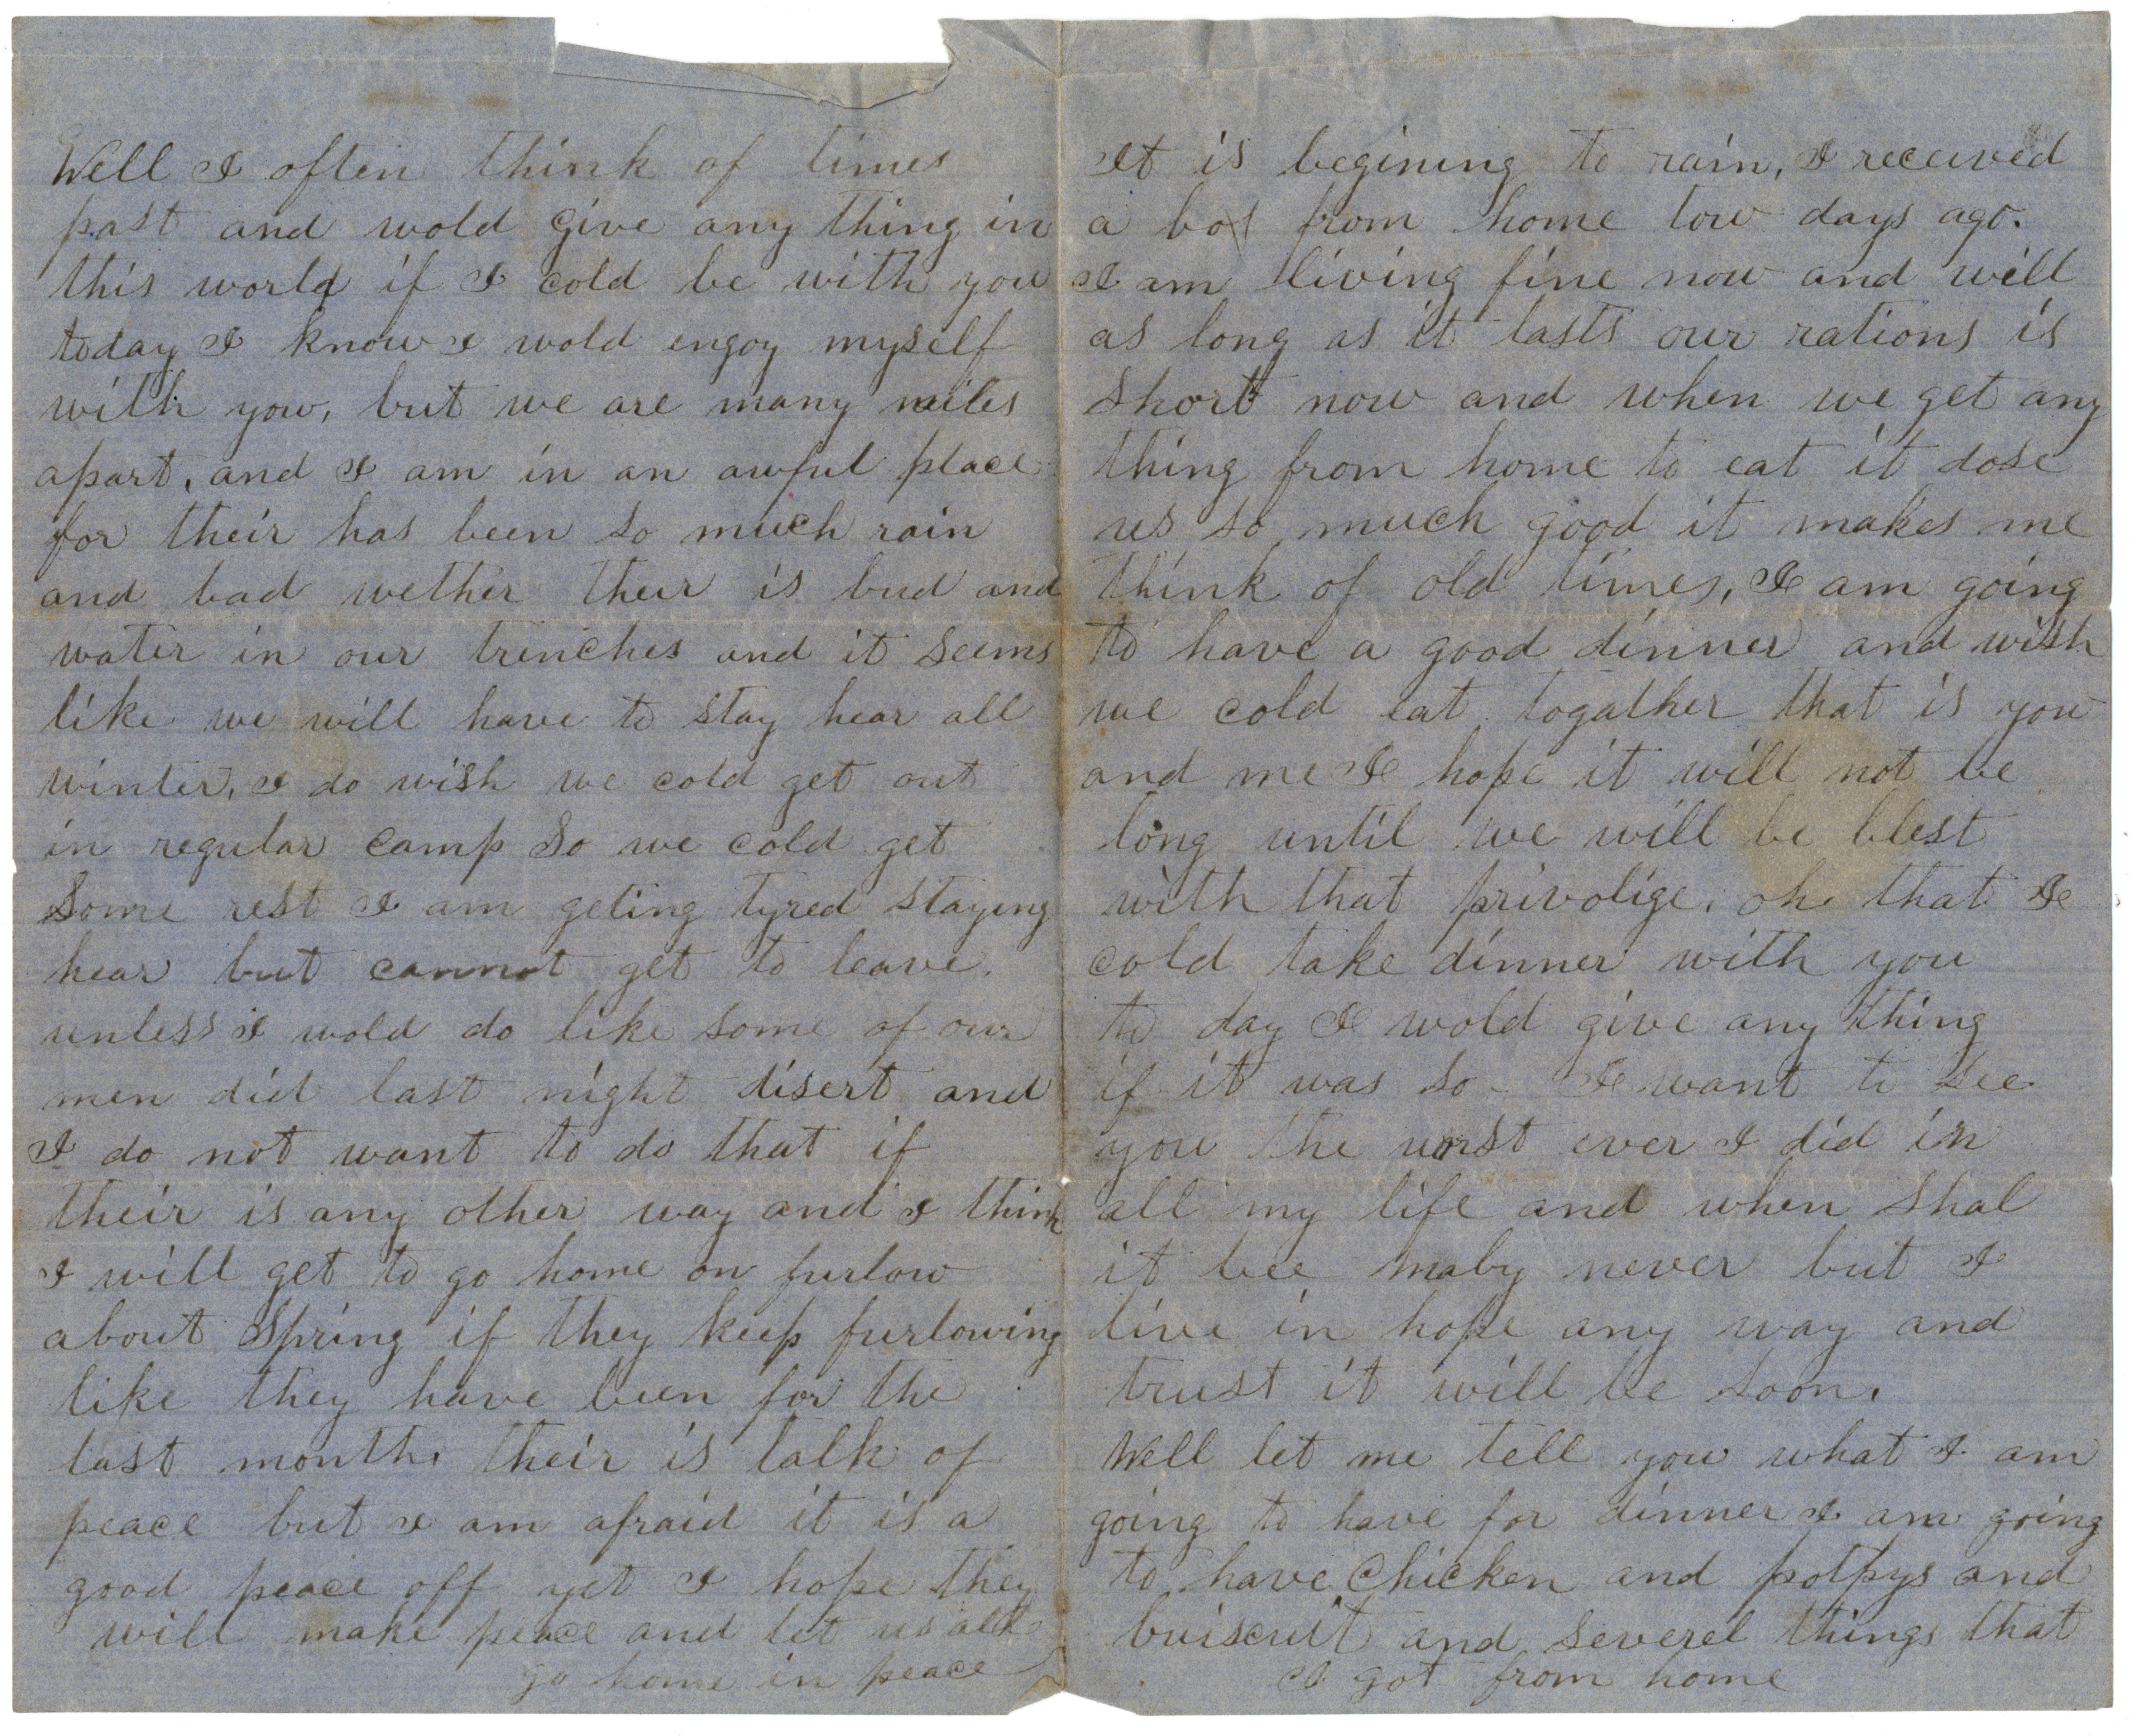 Well I often think of times
past and wold give any thing in
this world if I cold be with you
today I know I wold engoy myself
with you, but we are many miles
apart, and I am in an awful place
for their has been so much rain
and bad wether their is bud and
water in our trenches and it seems
like we will have to stay hear all
winter, I do wish we cold get out
in regular camp so we cold get
some rest I am geting tyred staying
hear but cannot get to leave.
unless I wold do like some of our
men did last night disert and
I do not want to do that if
their is any other way and I think
I will get to go home on furlow
about Spring if they keep furlowing
like they have been for the
last month, their is talk of
peace but I am afraid it is a
good peace off yet I hope they
will make peace and let us all
go home in peace
It is begining to rain, I received
a box from home tow days ago.
I am living fine now and will
as long as it lasts our rations is
short now and when we get any
thing from home to eat it dose
us so much good it makes me
think of old times, I am going
to have a good dinner and wish
we cold eat togather that is you
and me I hope it will not be
long until we will be blest
with that privolige. oh that I
cold take dinner with you
to day I wold give any thing
if it was so - I want to see
you the worst ever I did in
all my life and when shal
it bee maby never but I
live in hope any way and
trust it will be soon.
Well let me tell you what I am
going to have for dinner I am going
to have Chicken and potpys and
buiscuit and severel things that
I got from home